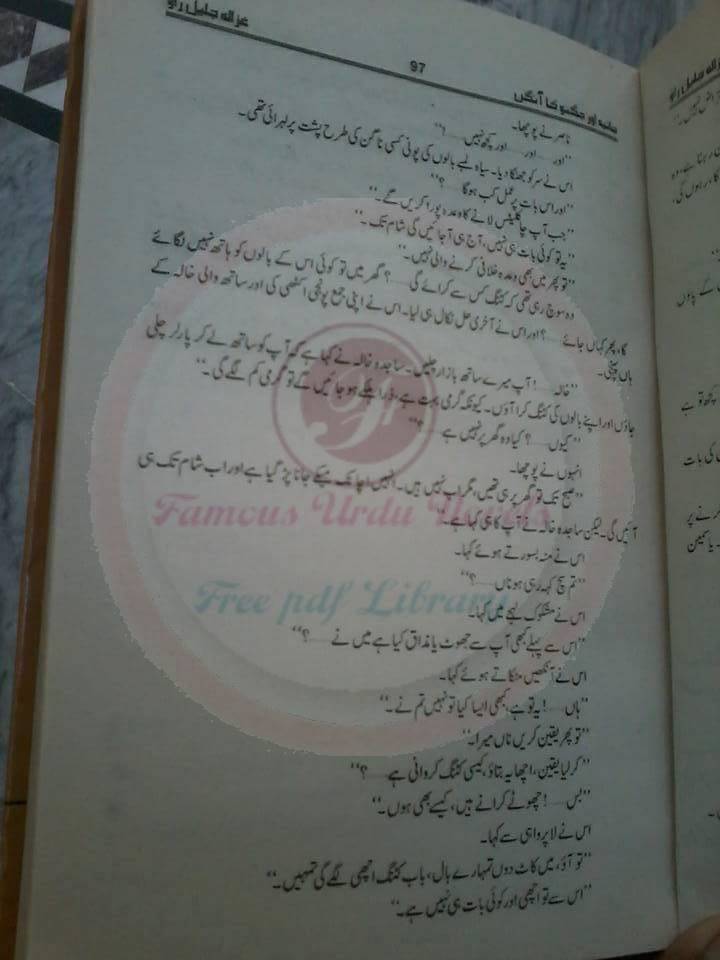 غزالہ جلیل راؤ
97
اور جگنو کا آنگن
ناصر نے پوچھا۔
”اور......اور......اور کچھ نہیں......!“
اس نے سر کو جھٹکا دیا۔ سیاہ لمبے بالوں کی پونی کسی ناگن کی طرح پشت پر لہرائی تھی۔
”اور اس بات پر عمل کب ہوگا......؟“
”جب آپ چاکلیٹس لانے کا وعدہ پورا کریں گے۔“
”یہ تو کوئی بات ہی نہیں، آج ہی آ جائیں گی شام تک۔“
”تو پھر میں بھی وعدہ خلافی کرنے والی نہیں۔“
وہ سوچ رہی تھی کہ کٹنگ کس سے کرائے گی......؟ گھر میں تو کوئی اس کے بالوں کو ہاتھ نہیں لگائے
گا، پھر کہاں جائے......؟ اور اس نے آخری حل نکال ہی لیا۔ اس نے اپنی جمع پونجی اکٹھی کی اور ساتھ والی خالہ کے
ہاں پہنچی۔
”خالہ......! آپ میرے ساتھ بازار چلیں۔ ساجدہ خالہ نے کہا ہے کہ آپ کو ساتھ لے کر پارلر چلی
جاؤں اور اپنے بالوں کی کٹنگ کرا آؤں۔ کیونکہ گرمی بہت ہے، ذرا ہلکے ہو جائیں گے تو گرمی کم لگے گی۔“
”کیوں......؟ کیا وہ گھر پر نہیں ہے......؟“
انہوں نے پوچھا۔
”صبح تک تو گھر پر ہی تھیں، مگر اب نہیں ہیں۔ انہیں اچانک میکے جانا پڑ گیا ہے اور اب شام تک ہی
آئیں گی۔ لیکن ساجدہ خالہ نے آپ کا ہی کہا ہے۔“
اس نے منہ بسورتے ہوئے کہا۔
”تم سچ کہہ رہی ہو ناں......؟“
اس نے مشکوک لہجے میں کہا۔
”اس سے پہلے کبھی آپ سے جھوٹ یا مذاق کیا ہے میں نے......؟“
اس نے آنکھیں مٹکاتے ہوئے کہا۔
”ہاں......! یہ تو ہے، کبھی ایسا کیا تو نہیں تم نے۔“
”تو پھر یقین کریں ناں میرا۔“
”کر لیا یقین، اچھا یہ بتاؤ، کیسی کٹنگ کروانی ہے......؟“
”بس......! چھوٹے کرانے ہیں، کیسے بھی ہوں۔“
اس نے لا پرواہی سے کہا۔
”تو آؤ، میں کاٹ دوں تمہارے بال، باب کٹنگ اچھی لگے گی تمہیں۔“
”اس سے تو اچھی اور کوئی بات ہی نہیں ہے۔“
Famous Urdu Novels
Free pdf Library